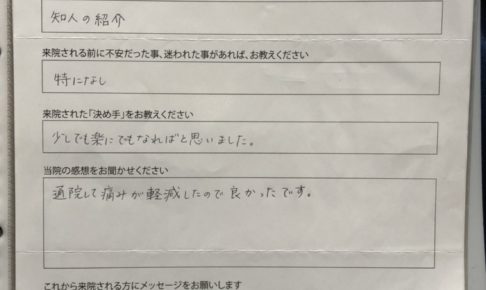 知人の紹介
来院される前に不安だった事、迷われた事があれば、お教えください
特になし
来院された「決め手」をお教えください
少しでも楽にでもなればと思いました。
当院の感想をお聞かせください
通院して痛みが軽減したので良かったです。
これから来院される方にメッセージをお願いします